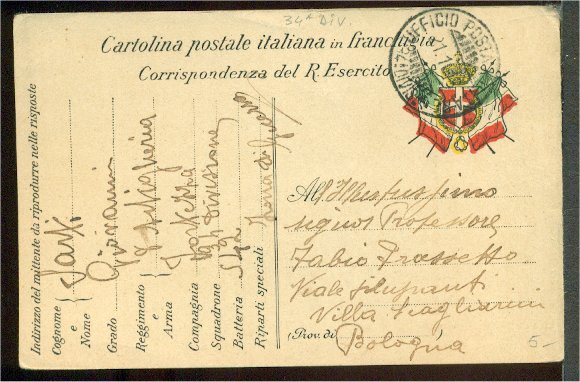 34ª DIV.
Cartolina postale italiana in franchigia
Corrispondenza del R. Esercito
UFFICIO POSTA
DIVISIONE
Indirizzo del mittente da riprodurre nelle risposte
Cognome Sarti
e
Nome Giovanni
Grado
Reggimento Artiglieria
e
Arma Fortezza
Compagnia
Squadrone Divisione
Batteria
Riparti speciali Zona di guerra
All'Illustrissimo
signor Professore
Fabio Frassetto
Viale Filopanti
Villa
(Prov. di
Bologna
5-